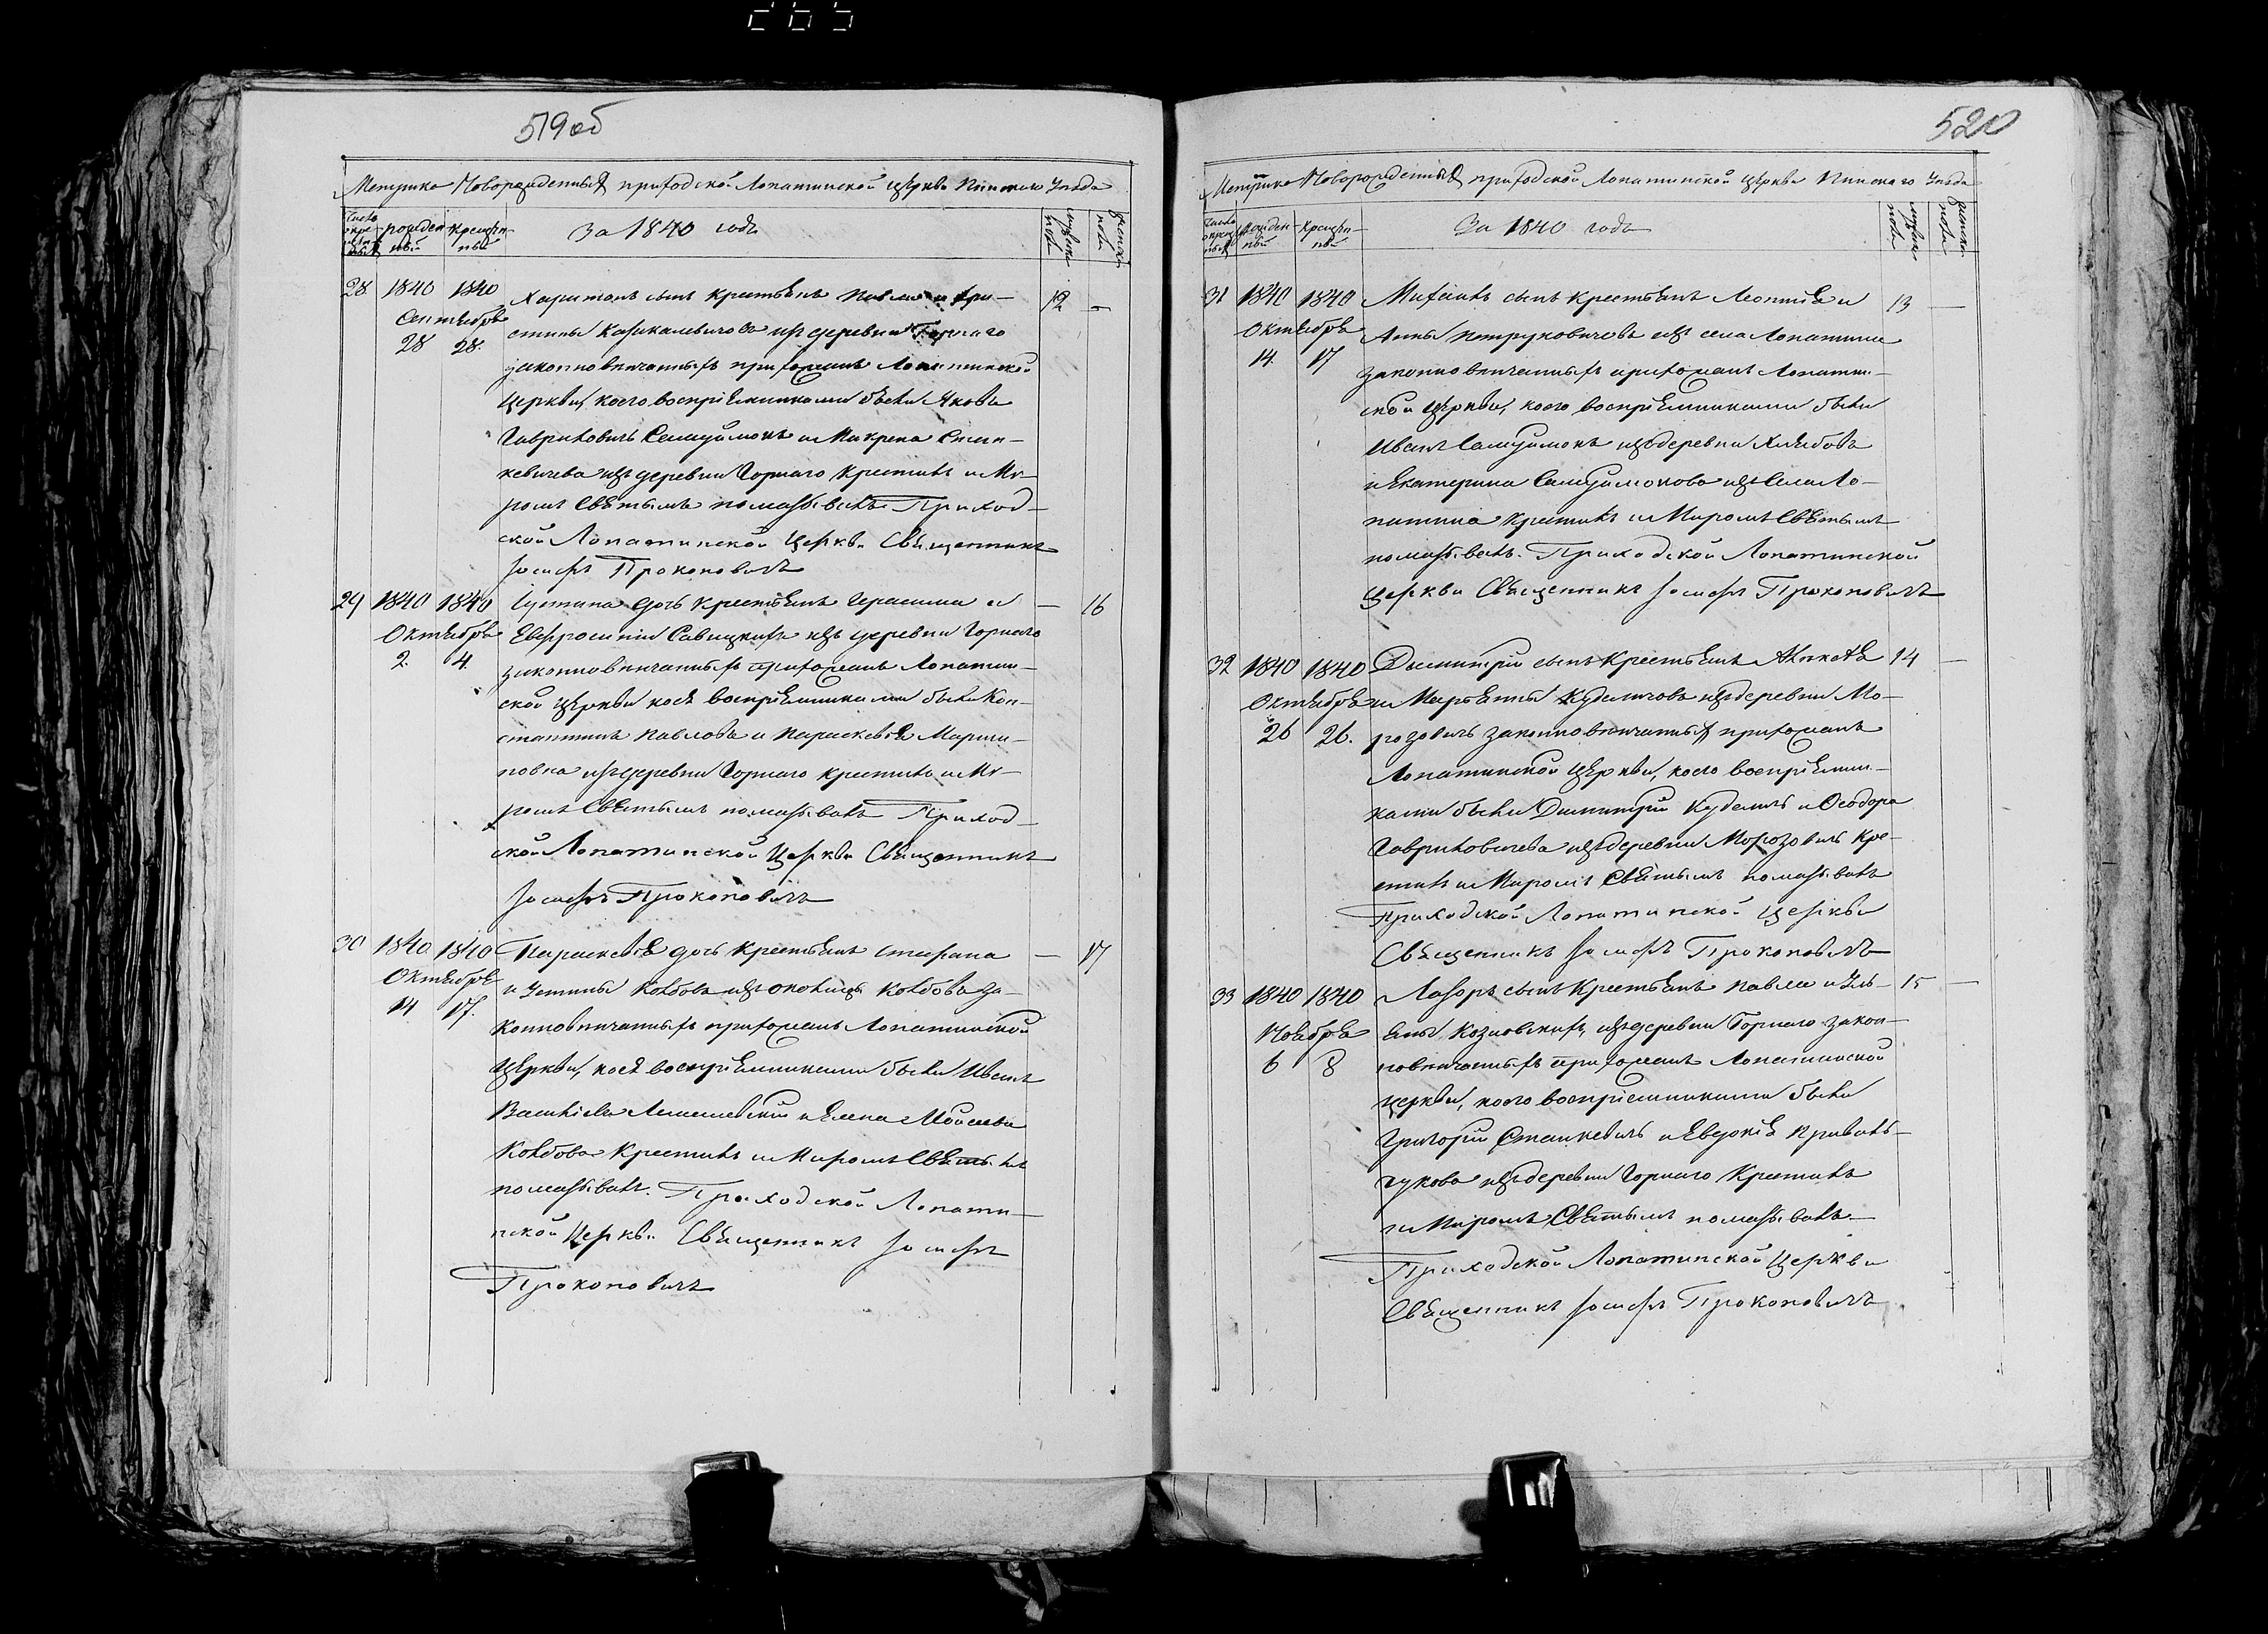 265
519об
Метрика Новорожденныхъ приходской Лопатинской церкви Пинскаго Уѣзда
Число окре щен ныхъ
рожден ный
крещен ный
За 1840 годъ
мужеска пола
женска пола
28 1840 1840 Сентября 28 28. 12 —
Харитонъ сынъ крестьянъ Павла и Хри-
стины изъ деревни Горнаго
законновѣнчанныхъ прихожанъ Лопатинской
церкви, коего воспріемниками были Яковъ
Гавриловичъ и Макрена Стан-
кевичева изъ деревни Горнаго крестилъ и Мѵ-
ромъ Святымъ помазывалъ Приход-
ской Лопатинской Церкви Священникъ
Іосифъ Прокоповичъ
29 1840 1840 Октября 2. 4. — 16
Іустина дочь крестьянъ Герасима и
Евфросиніи Савицкихъ изъ деревни Горнаго
законновѣнчанныхъ прихожанъ Лопатин-
ской церкви коея воспріемниками были Кон-
стантинъ Павловъ и Параскевія Марти-
новна изъ деревни Горнаго крестилъ и Мѵ-
ромъ Святымъ помазывалъ Приход-
ской Лопатинской Церкви Священникъ
Іосифъ Прокоповичъ
30 1840 1840 Октября 14 17. — 17
Параскевія дочь крестьянъ Стефана
и Устины Колбовъ изъ околицы Колбовъ за-
конновѣнчанныхъ прихожанъ Лопатинской
Церкви, коея воспріемниками были Иванъ
Васильевъ и Елена Моисеева
Колбова Крестилъ и Миромъ Святымъ
помазывалъ. Приходской Лопати-
нской Церкви Священникъ Іосифъ
Прокоповичъ
520
Метрика Новорожденныхъ приходской Лопатинской церкви Пинскаго Уѣзда
Число окре щен ныхъ
рожден ный
крещен ный
За 1840 годъ
мужеска пола
женска пола
31 1840 1840 Октября 14. 17 13 —
Михаилъ сынъ крестьянъ Леонтія и
Анны Петруковичовъ изъ села Лопатина
законновѣнчанныхъ прихожанъ Лопатин-
ской церкви, коего воспріемниками были
Иванъ изъ деревни
и Екатерина изъ Села Ло-
патина Крестилъ и Миромъ Святымъ
помазывалъ. Приходской Лопатинской
Церкви Священникъ Іосифъ Прокоповичъ
32 1840 1840 Октября 26 26. 14 —
Димитрій сынъ Крестьянъ Алексѣя
и Марьяны Куделичовъ изъ деревни Мо-
розовичъ законновѣнчанныхъ прихожанъ
Лопатинской Церкви, коего воспріемни-
ками были Димитрій Куделичъ и Ѳеодора
Гавриловичева изъ деревни Морозовичъ Кре-
стилъ и Миромъ Святымъ помазывалъ
Приходской Лопатинской Церкви
Священникъ Іосифъ Прокоповичъ
33 1840 1840 Ноября 6 8 15 —
Лазоръ сынъ Крестьянъ Павла и Уль-
яны Козловскихъ, изъ деревни Горнаго закон-
новѣнчанныхъ прихожанъ Лопатинской
церкви, коего воспріемниками были
Григорій Станкевичъ и Евдокія Приваль-
чукова изъ деревни Горнаго Крестилъ
и Миромъ Святымъ помазывалъ
Приходской Лопатинской Церкви
Священникъ Іосифъ Прокоповичъ